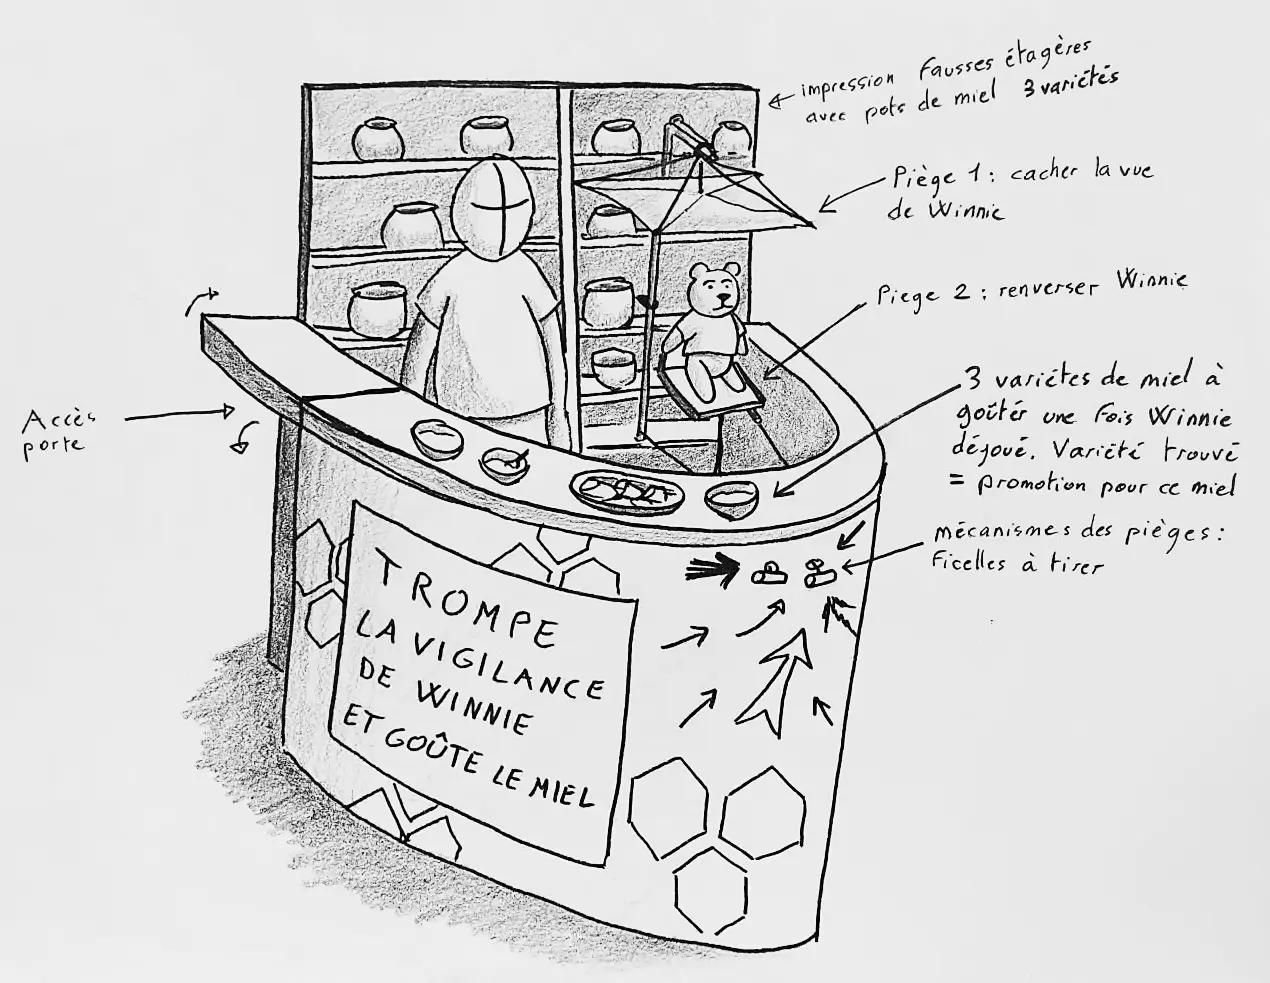 impression fausses étagères
avec pots de miel 3 variétés
Piège 1 : cacher la vue
de Winnie
Piege 2 : renverser Winnie
3 variétes de miel à
goûtér une fois Winnie
déjoué. Variété trouvé
= promotion pour ce miel
mécanismes des pièges :
Ficelles à tirer
Accès
porte
TROMPE
LA VIGILANCE
DE WINNIE
ET GOÛTE LE MIEL